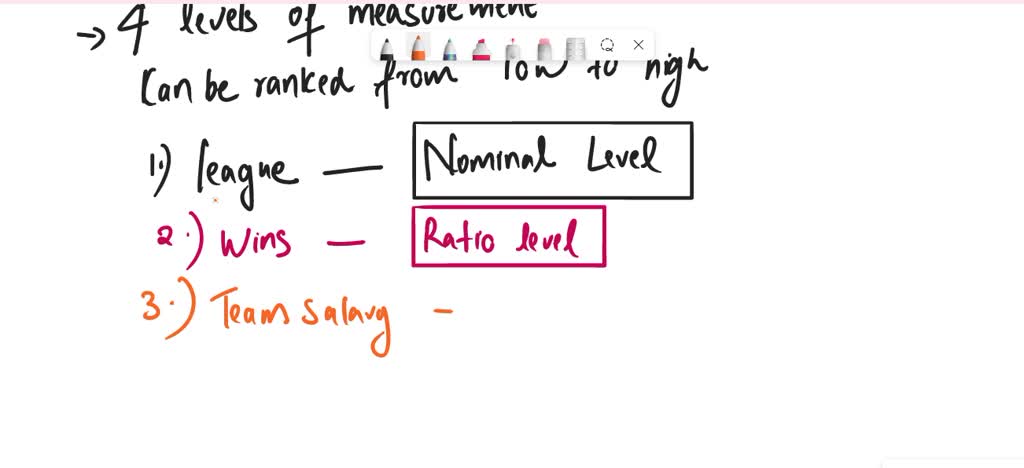 → 4 levels of measurement
Can be ranked from low to high
1.) league — Nominal Level
2.) Wins — Ratio level
3.) Team salary -